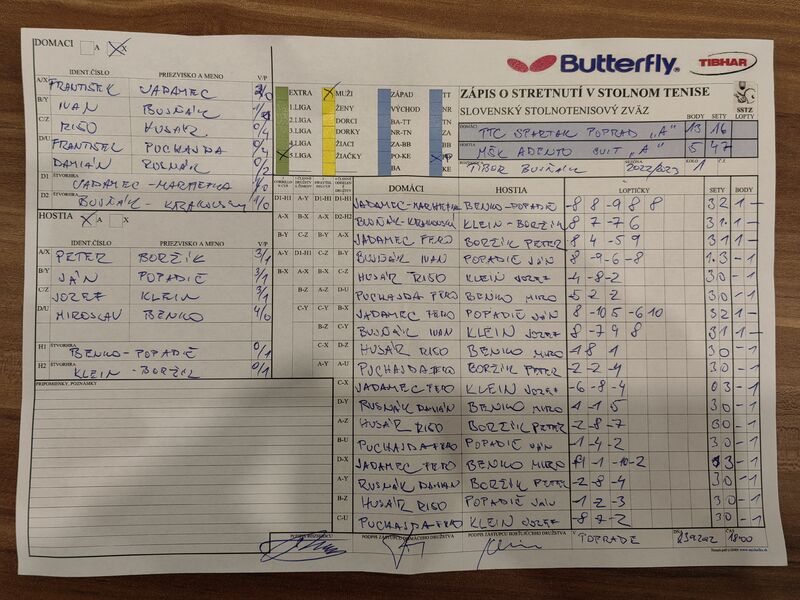 DOMÁCI A X
Butterfly TIBHAR
IDENT.ČÍSLO PRIEZVISKO A MENO V/P
A/X FRANTIŠEK JADAMEC
B/Y IVAN BUJŇÁK
C/Z RIŠO HUSÁR 0/4
Z/U FRANTIŠEK PUCHAJDA
DAMIÁN RUSNÁK 0/2
D1 ŠTVORHRA
JADAMEC-MARHEFKA 1/0
D2 BUJŇÁK-KRAKOVSKÝ 1/0
HOSTIA A X
IDENT.ČÍSLO PRIEZVISKO A MENO V/P
A/X PETER BORŽÍK 3/1
B/Y JÁN POPADIČ 3/1
C/Z JOZEF KLEIN 3/1
D/U MIROSLAV BENKO 4/0
H1 ŠTVORHRA
BENKO-POPADIČ 0/1
H2 ŠTVORHRA
KLEIN-BORŽÍK 0/1
PRIPOMIENKY, POZNÁMKY
EXTRA MUŽI ZÁPAD TT
1.LIGA ŽENY VÝCHOD
2.LIGA DORCI BA-TT
3.LIGA DORKY NR-TN
4.LIGA ŽIACI ZA-BB
5.LIGA ŽIAČKY PO-KE
BA KE
ZÁPIS O STRETNUTÍ V STOLNOM TENISE
SLOVENSKÝ STOLNOTENISOVÝ ZVÄZ
SSTZ
BODY SETY LOPTY
DOMÁCI TTC SPARTAK POPRAD "A" 13 16
HOSTIA MŠK ADENTO SVIT "A" 5 47
TIBOR BUJŇÁK SEZÓNA 2022/2023 KOLO 1
DOMÁCI HOSTIA LOPTIČKY SETY BODY
D1-H1 JADAMEC-MARHEFKA BENKO-POPADIČ -8 8 -9 8 8 3 2 1 -
D2-H2 BUJŇÁK-KRAKOVSKÝ KLEIN-BORŽÍK 8 -7 7 6 3 1 1 -
A-X JADAMEC FERO BORŽÍK PETER 8 4 -5 9 3 1 1 -
B-Y BUJŇÁK IVAN POPADIČ JÁN 8 -9 -6 -8 1 3 - 1
C-Z HUSÁR RIŠO KLEIN JOZEF -4 -8 -2
D-U PUCHAJDA FERO BENKO MIRO -5 2 2 3 0 - 1
A-Y JADAMEC FERO POPADIČ JÁN 8 -10 5 -6 10 3 2 1 -
B-Z BUJŇÁK IVAN KLEIN JOZEF 8 -7 9 8 3 1 1 -
C-X HUSÁR RIŠO BENKO MIRO -1 8 1 3 0 - 1
PUCHAJDA FERO BORŽÍK PETER -2 -2 -4 3 0 - 1
C-X JADAMEC FERO KLEIN JOZEF -6 -8 -4 0 3 - 1
D-Y RUSNÁK DAMIÁN BENKO MIRO 3 0 - 1
A-Z HUSÁR RIŠO BORŽÍK PETER -2 -8 -7 3 0 - 1
B-U PUCHAJDA FERO POPADIČ JÁN -1 -4 -2 3 0 - 1
D-X JADAMEC FERO BENKO MIRO -1 -10 -2 3 - 1
A-Y RUSNÁK DAMIAN BORŽÍK PETER -2 -8 -4 3 0 - 1
B-Z HUSÁR RIŠO POPADIČ JÁN -1 -2 -3 3 0 - 1
C-U PUCHAJDA FERO KLEIN JOZEF -8 -7 -2 3 0 - 1
PODPIS ROZHODCU PODPIS ZÁSTUPCU DOMÁCEHO DRUŽSTVA PODPIS ZÁSTUPCU HOSŤUJÚCEHO DRUŽSTVA V POPRADE DŇA ČAS 18:00